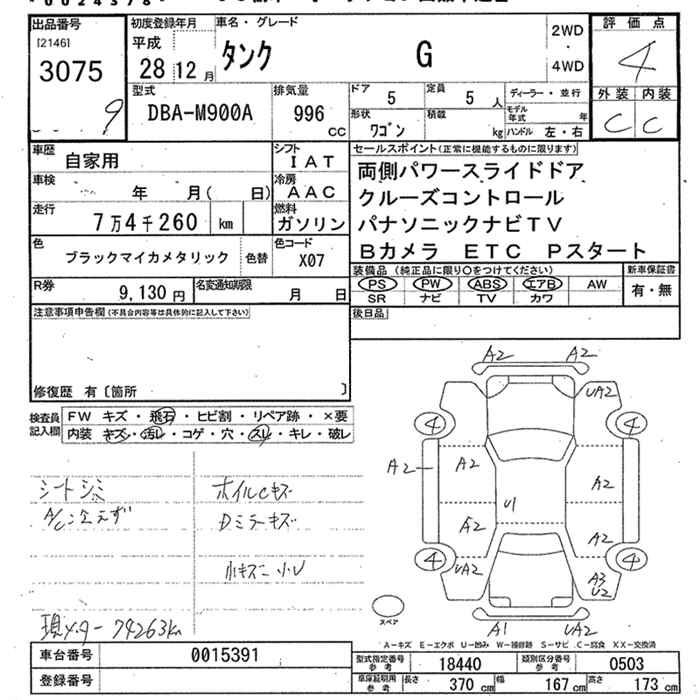 出品番号
[2146]
3075
9
初度登録年月
平成
28 12 月
車名・グレード
タンク G
2WD
・
4WD
評価点
4
外装 内装
C C
型式
DBA-M900A
排気量
996 CC
ドア 5
定員 5 人
形状 ワゴン
積載 kg
ディーラー・並行
モデル年式 年
ハンドル 左・右
車歴 自家用
シフト IAT
車検 年 月( 日)
冷房 AAC
走行 7万4千260 km
燃料 ガソリン
色 ブラックマイカメタリック 色替
色コード X07
R券 9,130 円
名変通知期限 月 日
セールスポイント(正常に機能するものに限ります)
両側パワースライドドア
クルーズコントロール
パナソニックナビTV
Bカメラ ETC Pスタート
装備品 (純正品に限り○をつけてください)
PS PW ABS エアB AW
SR ナビ TV カワ
新車保証書
有・無
後日品
注意事項申告欄(不具合内容等は具体的に記入して下さい)
修復歴 有〔箇所 〕
検査員記入欄
FW キズ・飛石・ヒビ割・リペア跡・×要
内装 キズ・汚レ・コゲ・穴・スレ・キレ・破レ
シートシミ
ホイルCキズ
Dミラーキズ
小キズ 小U
現メーター 74263km
A2 A2
UA2
4 4
A2 A2 A2
U1
A2 A2
4 4
UA2
A3
U2
スペア
A1 UA2
A-キズ E-エクボ U-凹み W-補修跡 S-サビ C-腐食 XX-交換済
車台番号 0015391
登録番号
型式指定番号 参考 18440
類別区分番号 参考 0503
車庫証明用 参考 長さ 370 cm 幅 167 cm 高さ 173 cm